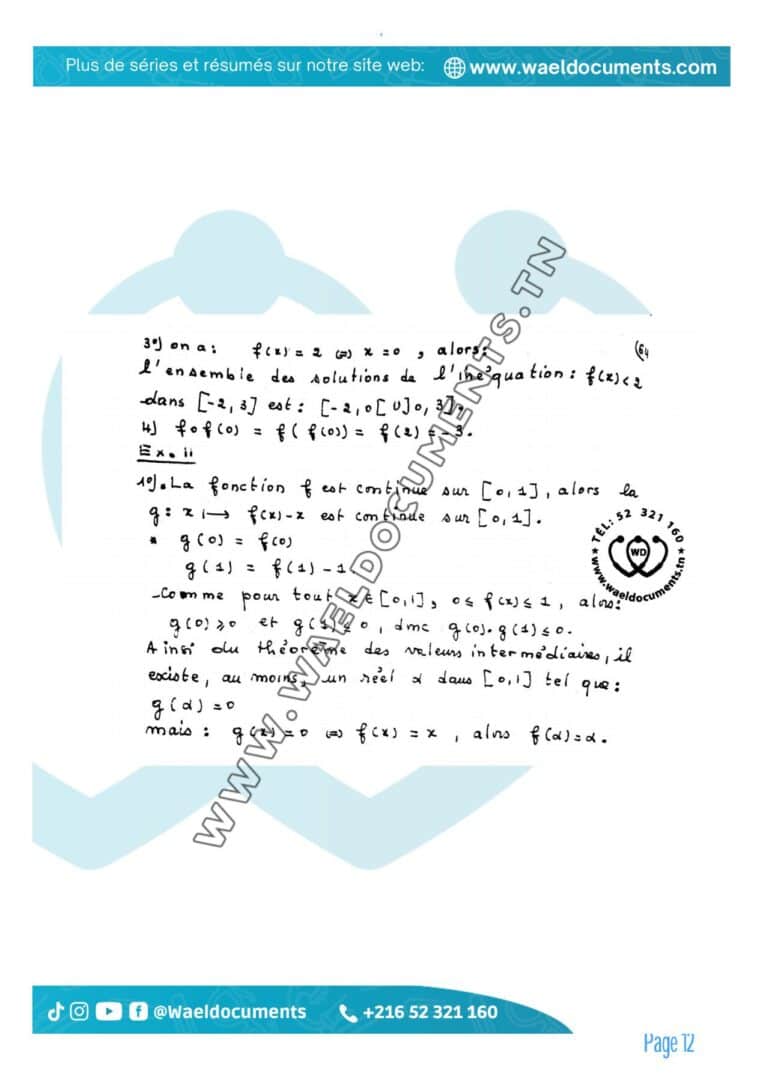 Plus de séries et résumés sur notre site web: www.waeldocuments.com
3°) on a: f(x) = 2 ⇔ x = 0 , alors: (64
l'ensemble des solutions de l'inéquation: f(x) < 2
dans [-2, 3] est: [-2, 0[ U ]0, 3].
4) f o f(0) = f( f(0)) = f(2) = -3.
Ex. 11
1°). La fonction f est continue sur [0,1], alors la
g: x ⟼ f(x)-x est continue sur [0,1].
* g(0) = f(0)
g(1) = f(1) - 1.
-Comme pour tout x ∈ [0,1], 0 ≤ f(x) ≤ 1 , alors:
g(0) ≥ 0 et g(1) ≤ 0 , donc g(0). g(1) ≤ 0.
Ainsi du théorème des valeurs intermédiaires, il
existe, au moins, un réel α dans [0,1] tel que:
g(α) = 0
mais: g(x) = 0 ⇔ f(x) = x , alors f(α) = α.
TÉL: 52 321 160
WD
www.waeldocuments.tn
WWW.WAELDOCUMENTS.TN
@Waeldocuments +216 52 321 160
Page 12